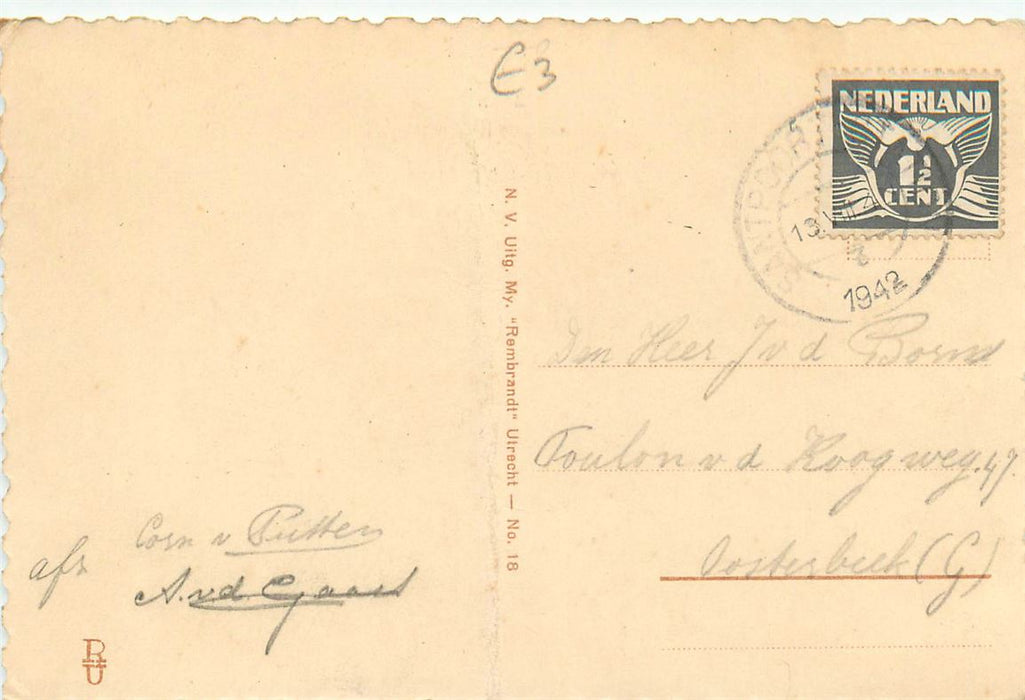 E3
NEDERLAND
1½
CENT
SANTPOORT
13.VII
1942
N. V. Uitg. My. "Rembrandt" Utrecht — No. 18
Den Heer J v d Born
Toulon v d Koogweg. 47
Oosterbeek (G)
Corn v Putten
afz
A. v d Gaast
RU